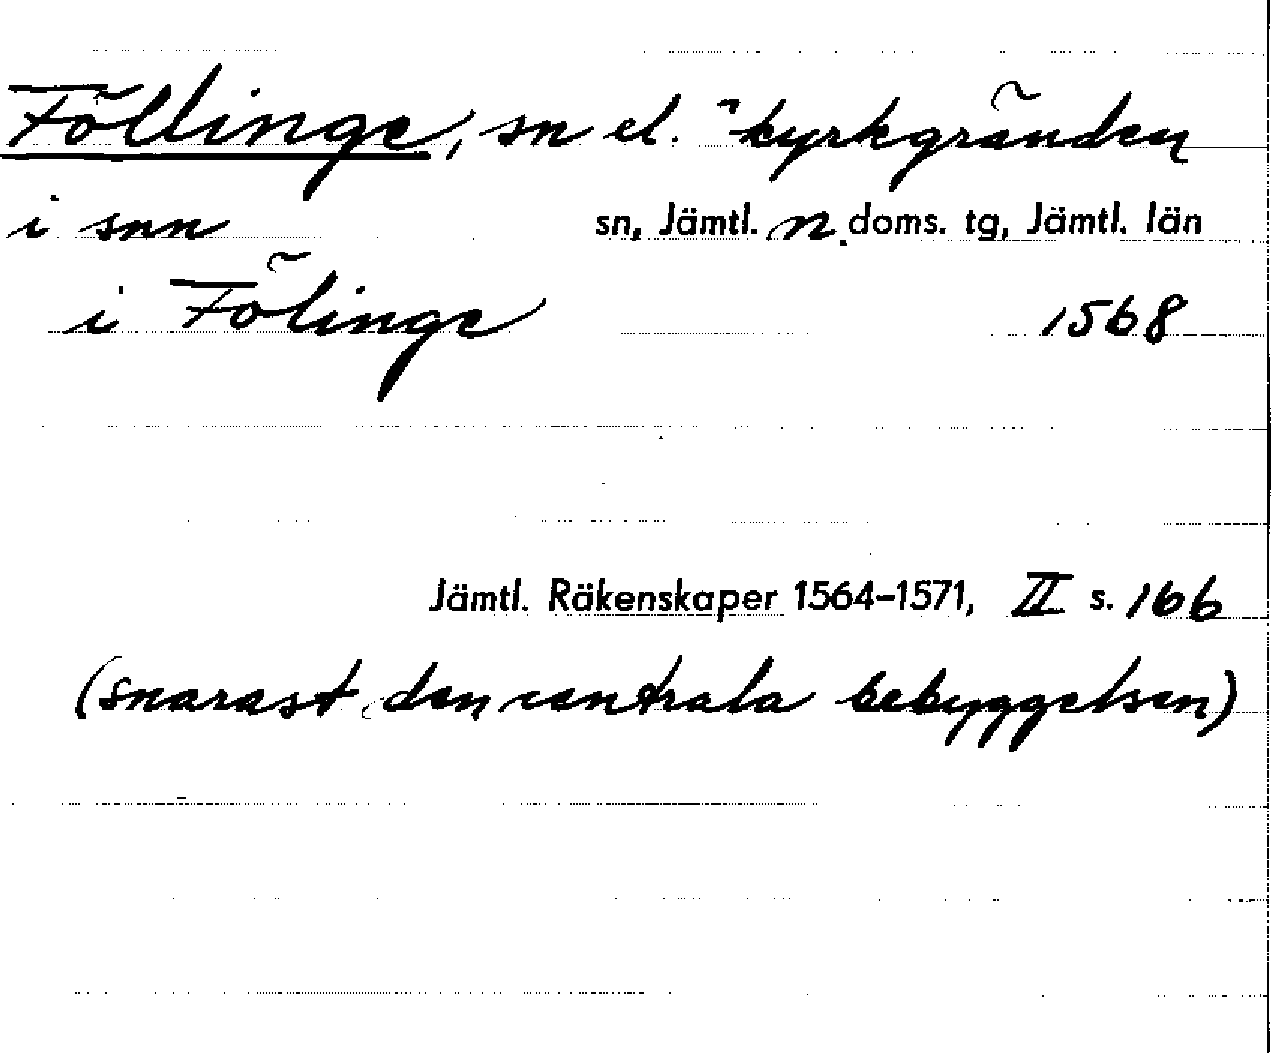 Föllinge, sn el. "kyrkgränden
i snn sn, Jämtl. n. doms. tg, Jämtl. län
i Fölinge 1568
Jämtl. Räkenskaper 1564–1571, II s. 166
(snarast den centrala bebyggelsen)